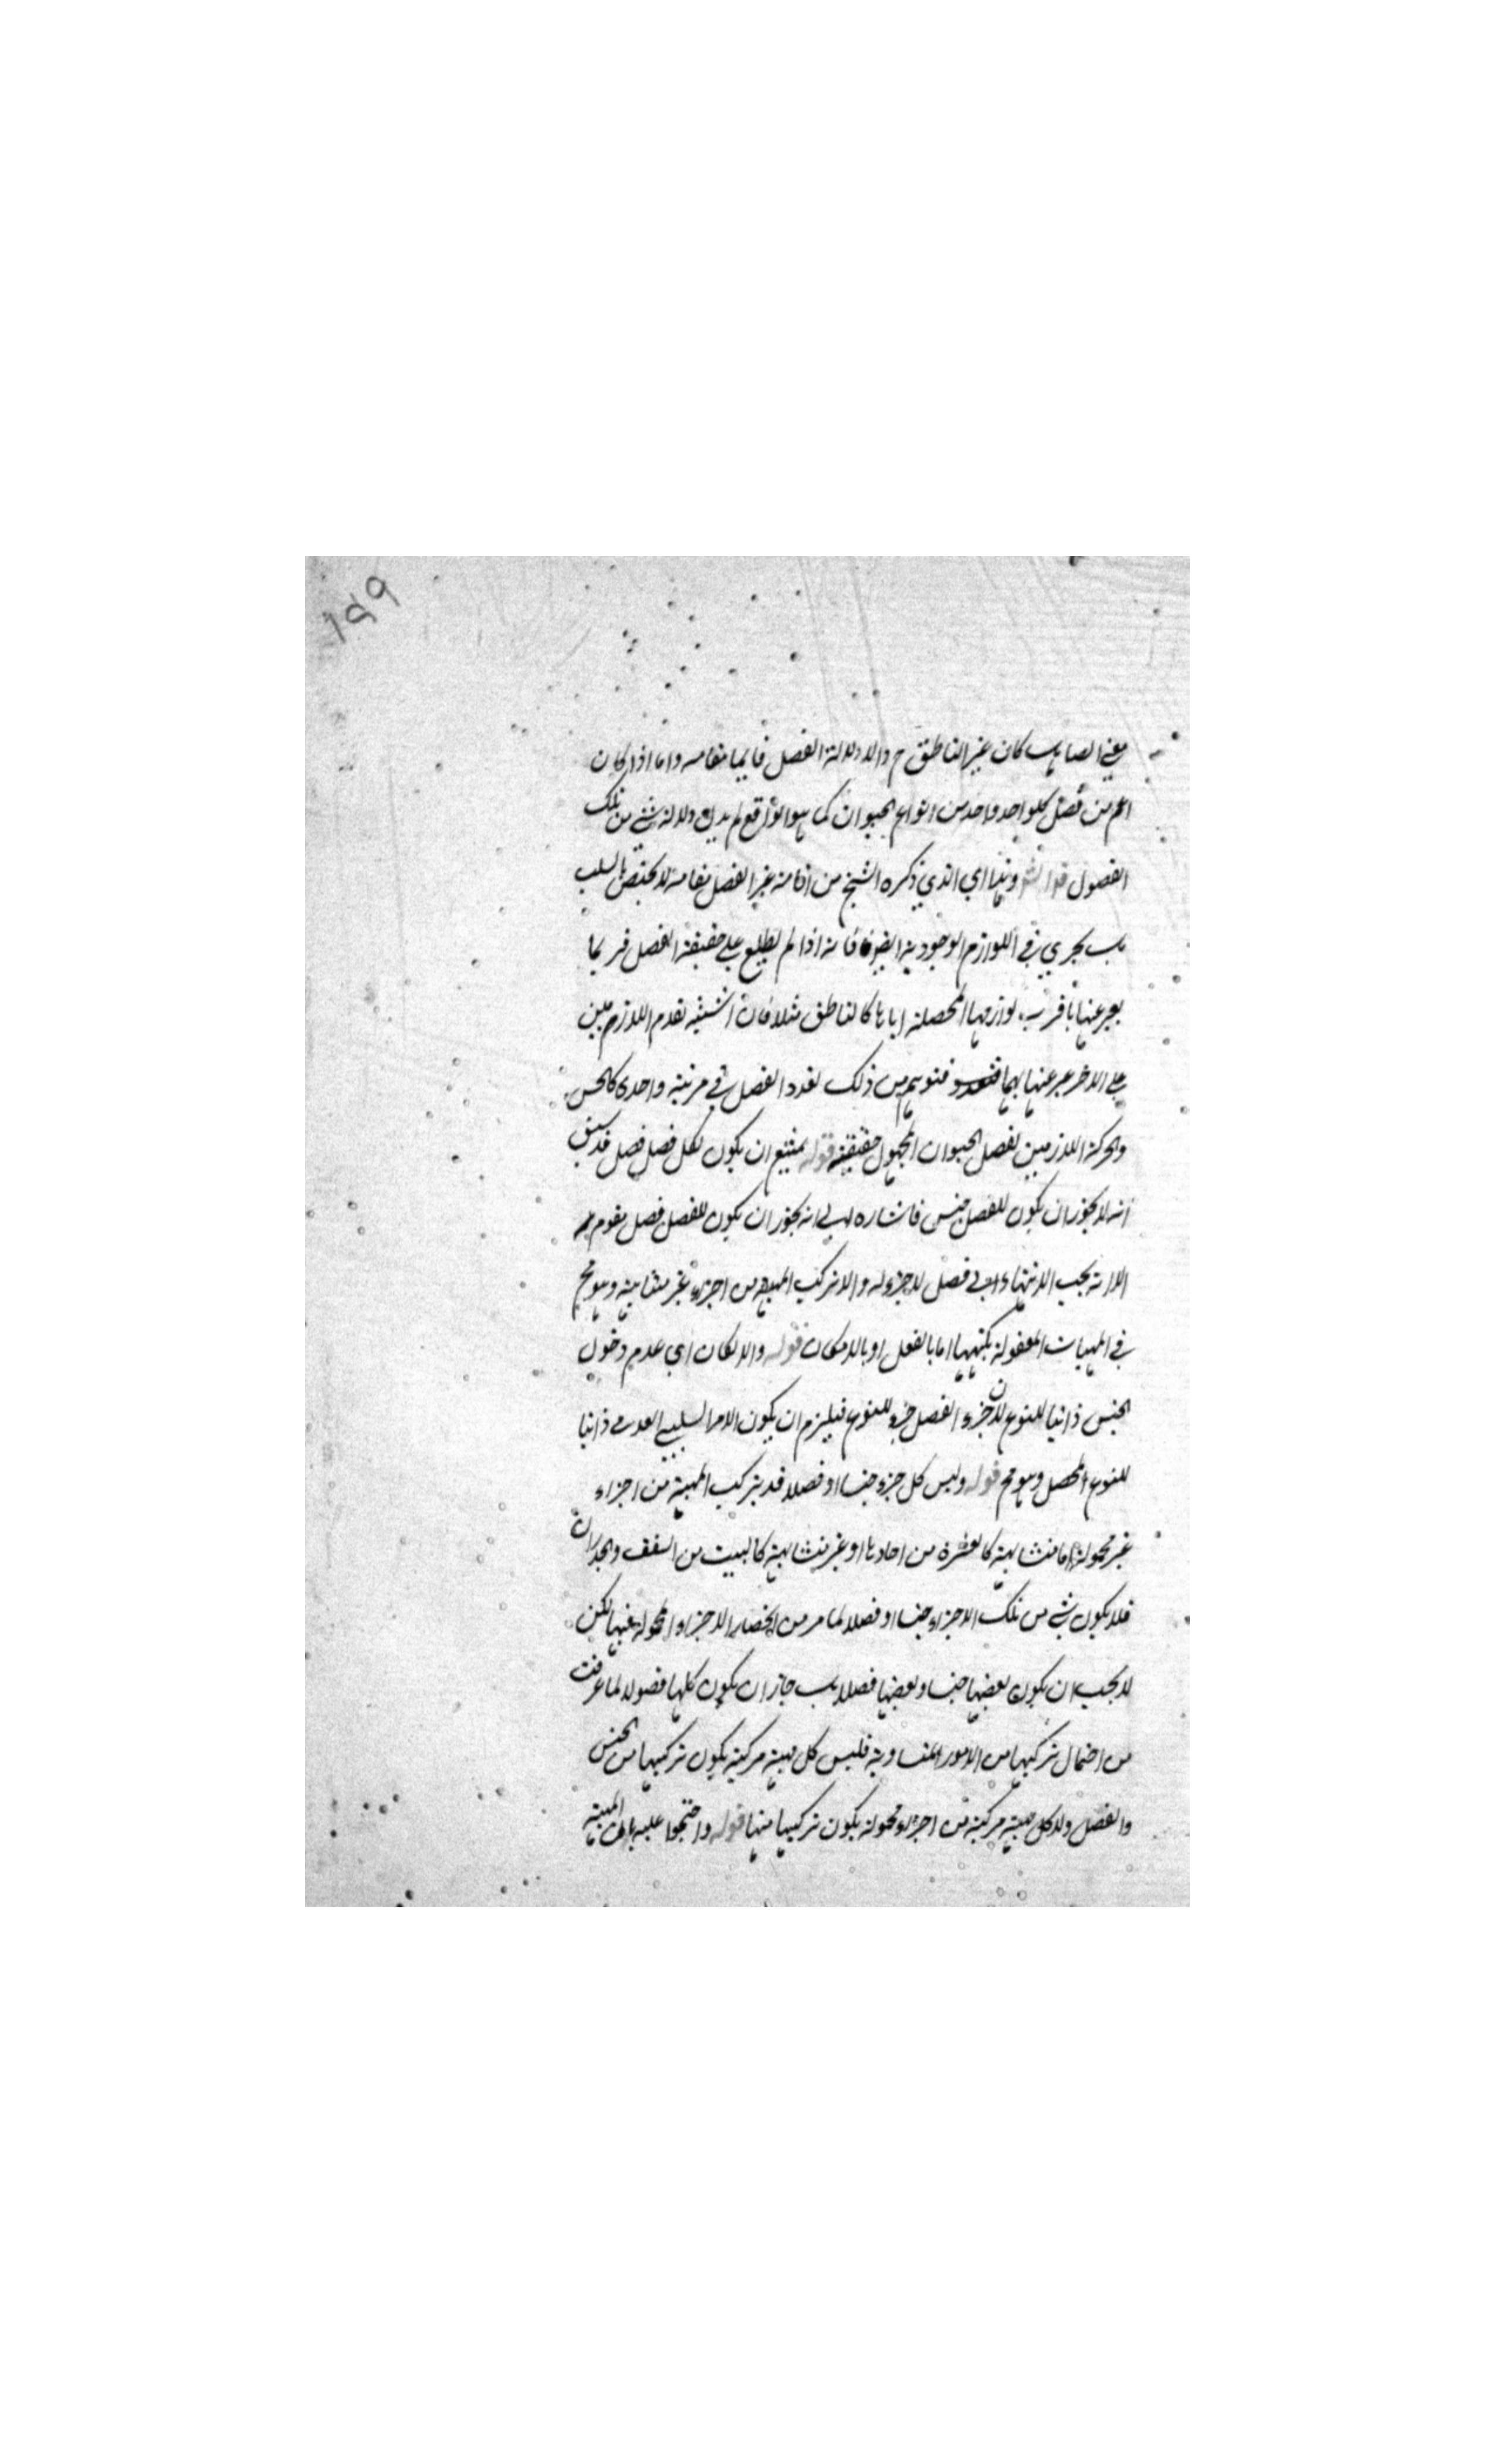 ١٥٩
معنى الصاهل كان غير الناطق ح والا دلالة الفصل قايما مقامه واما اذا كان
اعم من فصل كلواحد واحد من انواع الحيوان كما هو الواقع لم يدل دلالة شئ من تلك
الفصول قوله وهذا اي الذي ذكره الشيخ من اقامة غير الفصل مقامه لا يختص بالسلب
بل يجري في اللوازم الوجودية ايضا فانه اذا لم يطلع على حقيقة الفصل فربما
يعبر عنها باقرب لوازمها المحصلة اياها كالناطق مثلا فان اشتبه تقدم اللازمين
على الاخر عبر عنها بهما فتوهم من ذلك تعدد الفصل في مرتبة واحدة كالحس
والحركة اللازمين لفصل الحيوان المجهول حقيقته قوله يمتنع ان يكون لكل فصل فصل قد سبق
انه لا يجوز ان يكون للفصل جنس فاشار الى انه يجوز ان يكون للفصل فصل مقوم
الا انه يجب الانتهاء الى فصل لا جزء له والا تركب المهية من اجزاء غير متناهية وهو مح
في المهيات المعقولة بكنهها اما بالفعل او بالامكان قوله والا لكان اي عدم دخول
الجنس ذاتيا للنوع لان جزء الفصل جزء للنوع فيلزم ان يكون الامر السلبي العدمي ذاتيا
للنوع المحصل وهو مح قوله وليس كل جزء جنسا او فصلا قد يتركب المهية من اجزاء
غير محمولة اما متشابهة كالعشرة من احادها او غير متشابهة كالبيت من السقف والجدران
فلا يكون شئ من تلك الاجزاء جنسا او فصلا لما مر من انحصار الاجزاء المحمولة فيهما لكن
لا يجب ان يكون بعضها جنسا وبعضها فصلا بل جاز ان يكون كلها فصولا لما عرفت
من احتمال تركبها من الامور المتساوية فليس كل مهية مركبة يكون تركبها من الجنس
والفصل ولا كل مهية مركبة من اجزاء محمولة يكون تركبها منها قوله واحتجوا عليه بان المهية